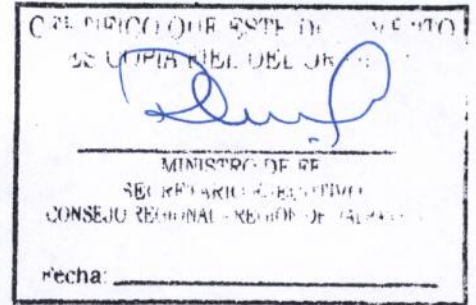 CERTIFICO QUE ESTE DOCUMENTO
ES COPIA FIEL DEL
MINISTRO DE FE
SECRETARIO EJECUTIVO
CONSEJO REGIONAL - REGIÓN DE
Fecha: